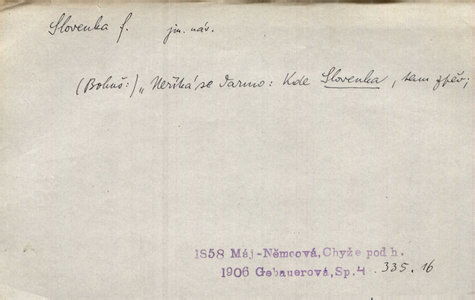 Slovenka f. jm. náv.
(Bohuš:) „Neříká se darmo: Kde Slovenka, tam zpěv;
1858 Máj-Němcová, Chyže pod h.
1906 Gebauerová, Sp. 4. 335. 16